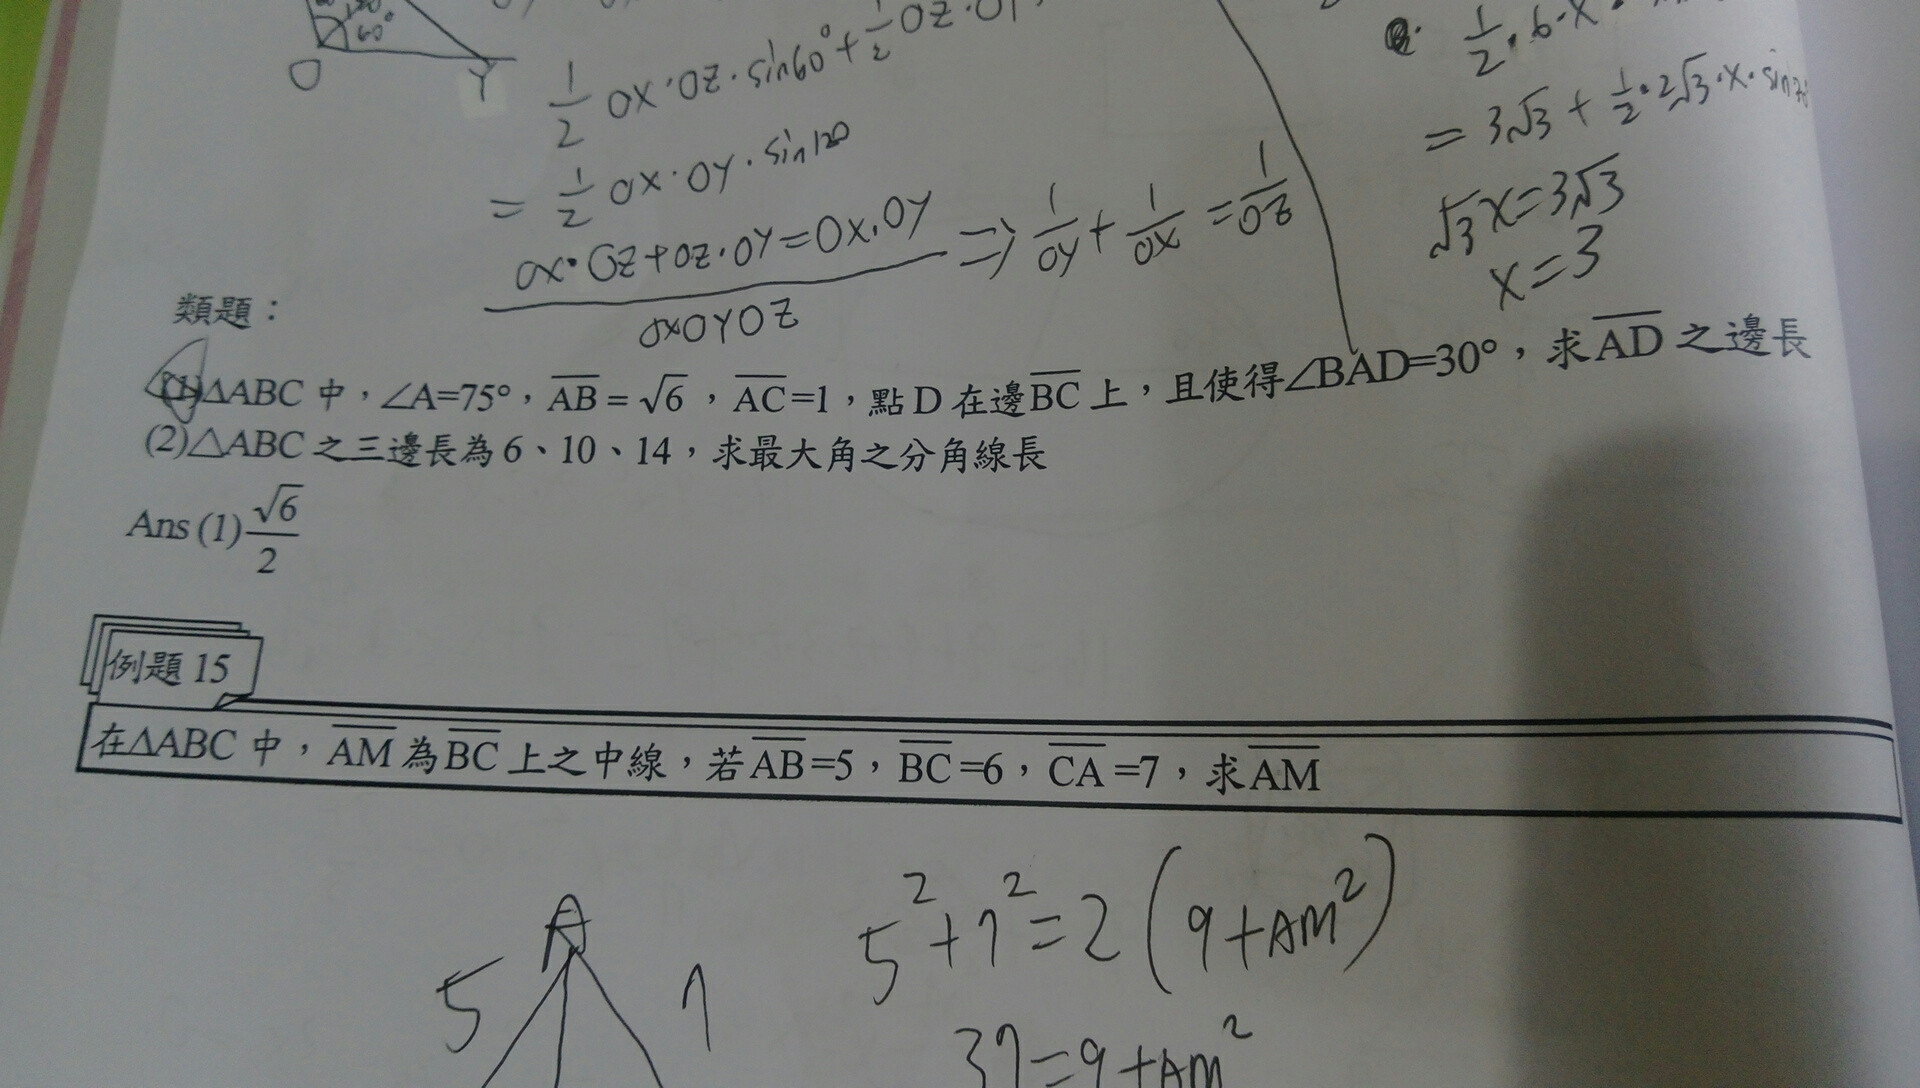 60°
O
Y
1/2 OX·OZ·sin60°+1/2 OZ·
= 1/2 OX·OY·sin120
OX·OZ+OZ·OY=OX·OY ⇒ 1/OY + 1/OX = 1/OZ
OXOYOZ
1/2·6·X·
= 3√3 + 1/2·2√3·X·sin
√3X=3√3
X=3
類題：
(1)△ABC 中，∠A=75°，AB = √6 ，AC=1，點 D 在邊BC 上，且使得∠BAD=30°，求AD 之邊長
(2)△ABC 之三邊長為 6、10、14，求最大角之分角線長
Ans (1) √6/2
例題 15
在ΔABC 中，AM 為BC 上之中線，若AB=5，BC=6，CA=7，求AM
A
5
7
5²+7²=2(9+AM²)
37=9+AM²